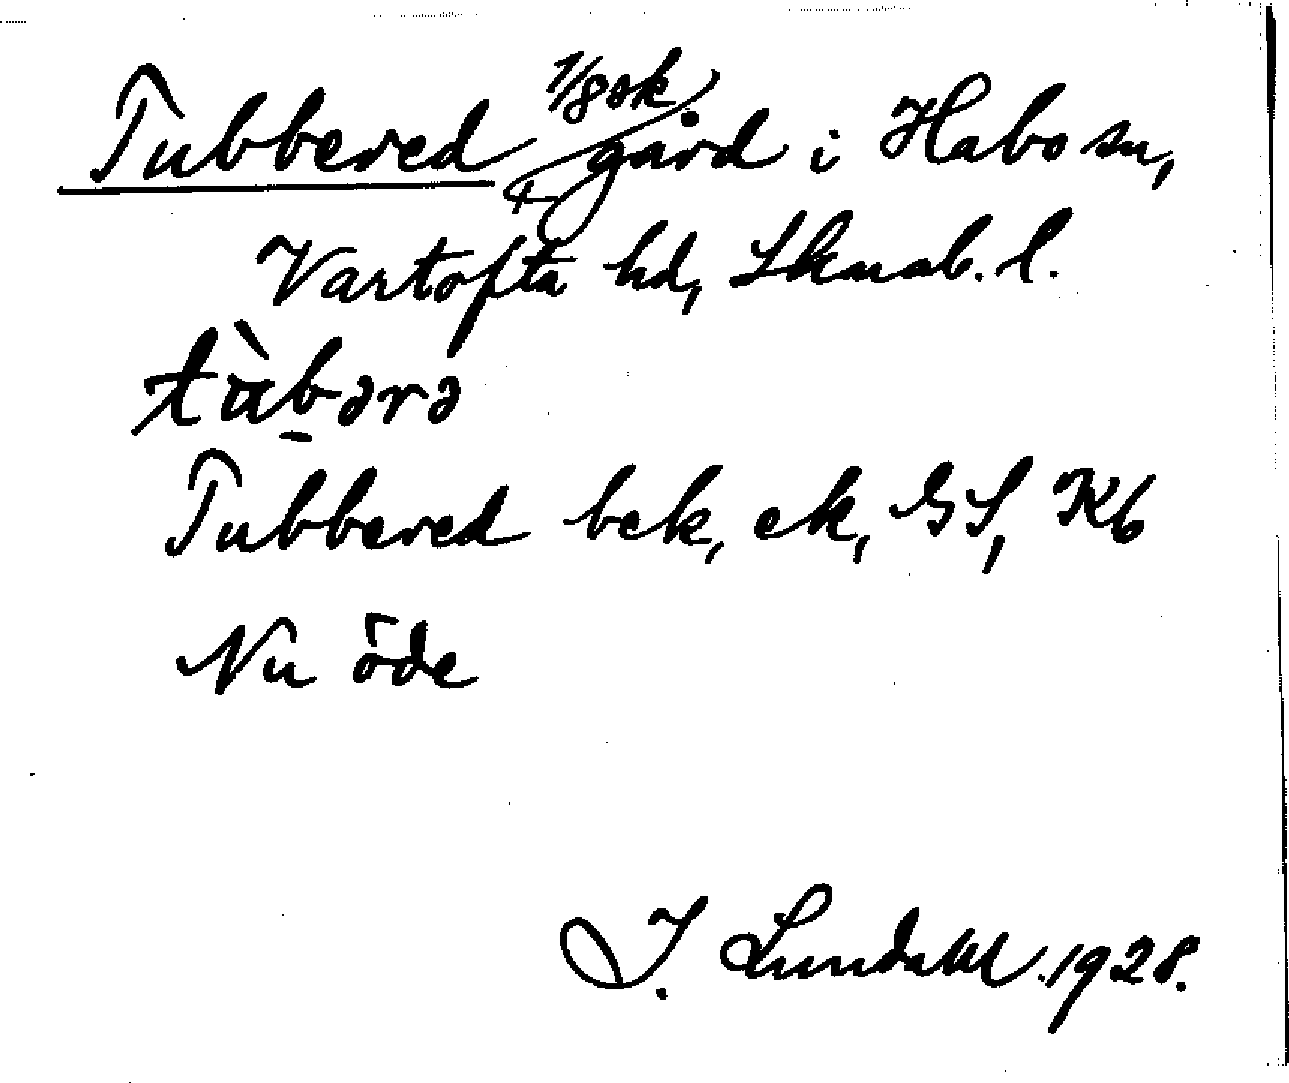 Tubbered 1/8 ok gård i Habo sn,
Vartofta hd, Skarab. l.
tùbərə
Tubbered bek, ek, GS, Kb
Nu öde
I. Lundahl. 1928.